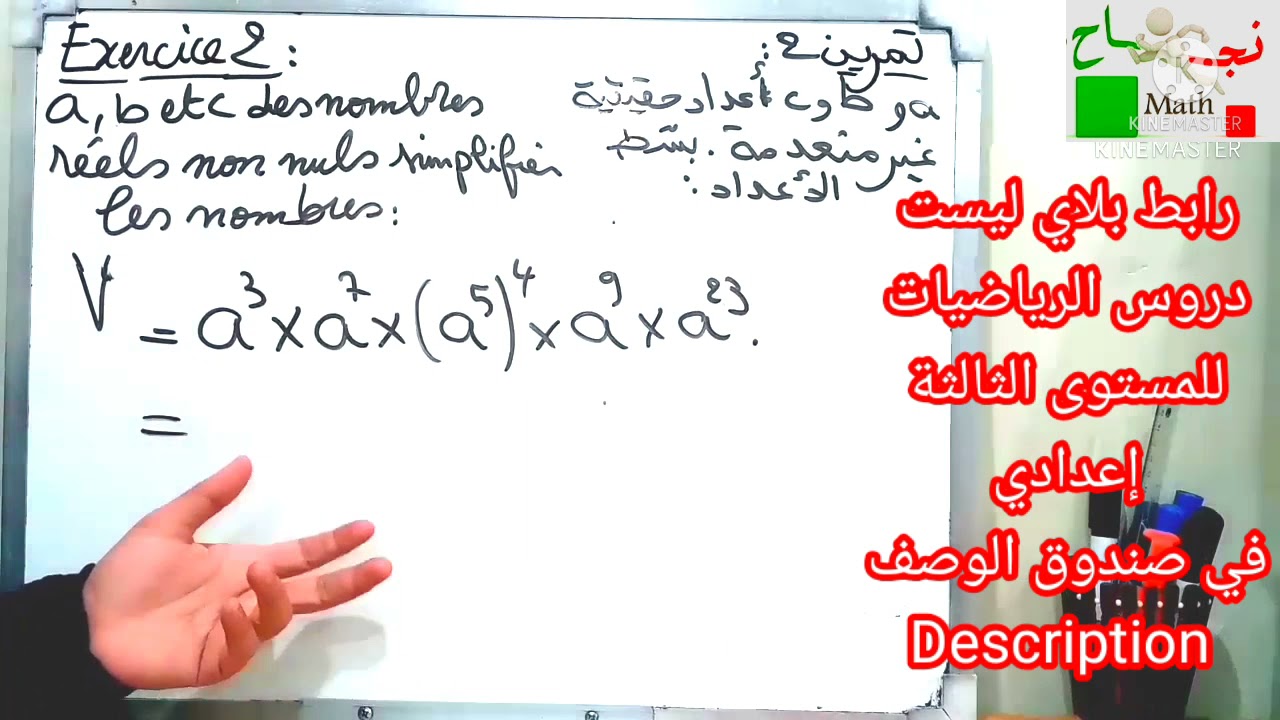 Exercice 2 :
a, b et c des nombres
réels non nuls simplifier
les nombres :
تمرين 2 :
a و b و c أعداد حقيقية
غير منعدمة . بسّط
الأعداد :
V = a³ × a⁷ × (a⁵)⁴ × a⁹ × a²³ .
=
نجـاح
Math
KINEMASTER
KINEMASTER
رابط بلاي ليست
دروس الرياضيات
للمستوى الثالثة
إعدادي
في صندوق الوصف
Description